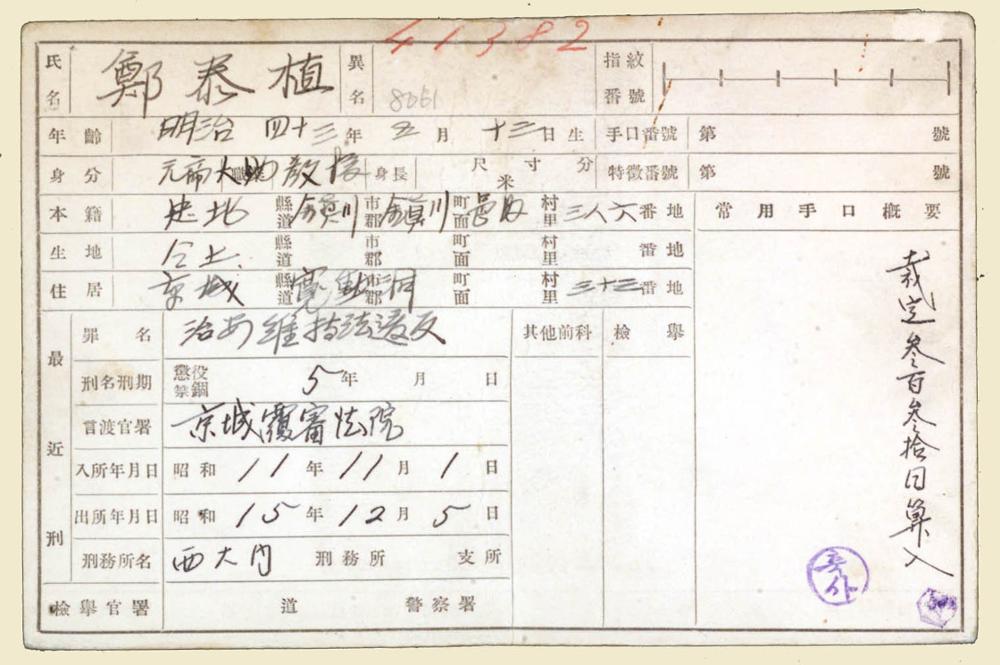 41382
氏名 鄭泰植 異名 8061 指紋番號
年齡 明治四十三年五月十三日生 手口番號 第 號
身分 元帝大助教授 職業 身長 尺寸分 米 特徵番號 第 號
本籍 忠北 縣道 鎭川 市郡 鎭川 町面 邑內 村里 三八六番地 常用手口槪要
生地 仝上 縣道 市郡 町面 村里 番地
住居 京城 縣道 寬勳洞 市郡 町面 村里 三十三番地
最近刑
罪名 治安維持法違反 其他前科 檢擧
刑名刑期 懲役 禁錮 5年 月 日
言渡官署 京城覆審法院
入所年月日 昭和11年11月1日
出所年月日 昭和15年12月5日
刑務所名 西大門 刑務所 支所
檢擧官署 道 警察署
裁定參百參拾日算入